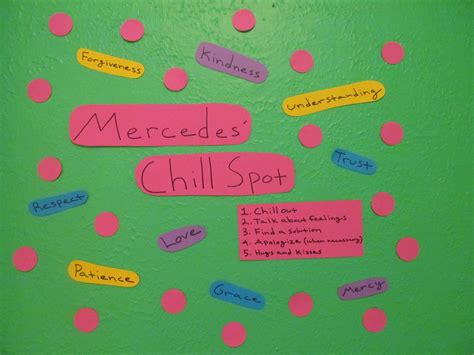 Forgiveness
Kindness
Understanding
Mercedes'
Chill Spot
Trust
Respect
1. Chill out
2. Talk about feelings
3. Find a solution
4. Apologize (when necessary)
5. Hugs and kisses
Love
Patience
Grace
Mercy